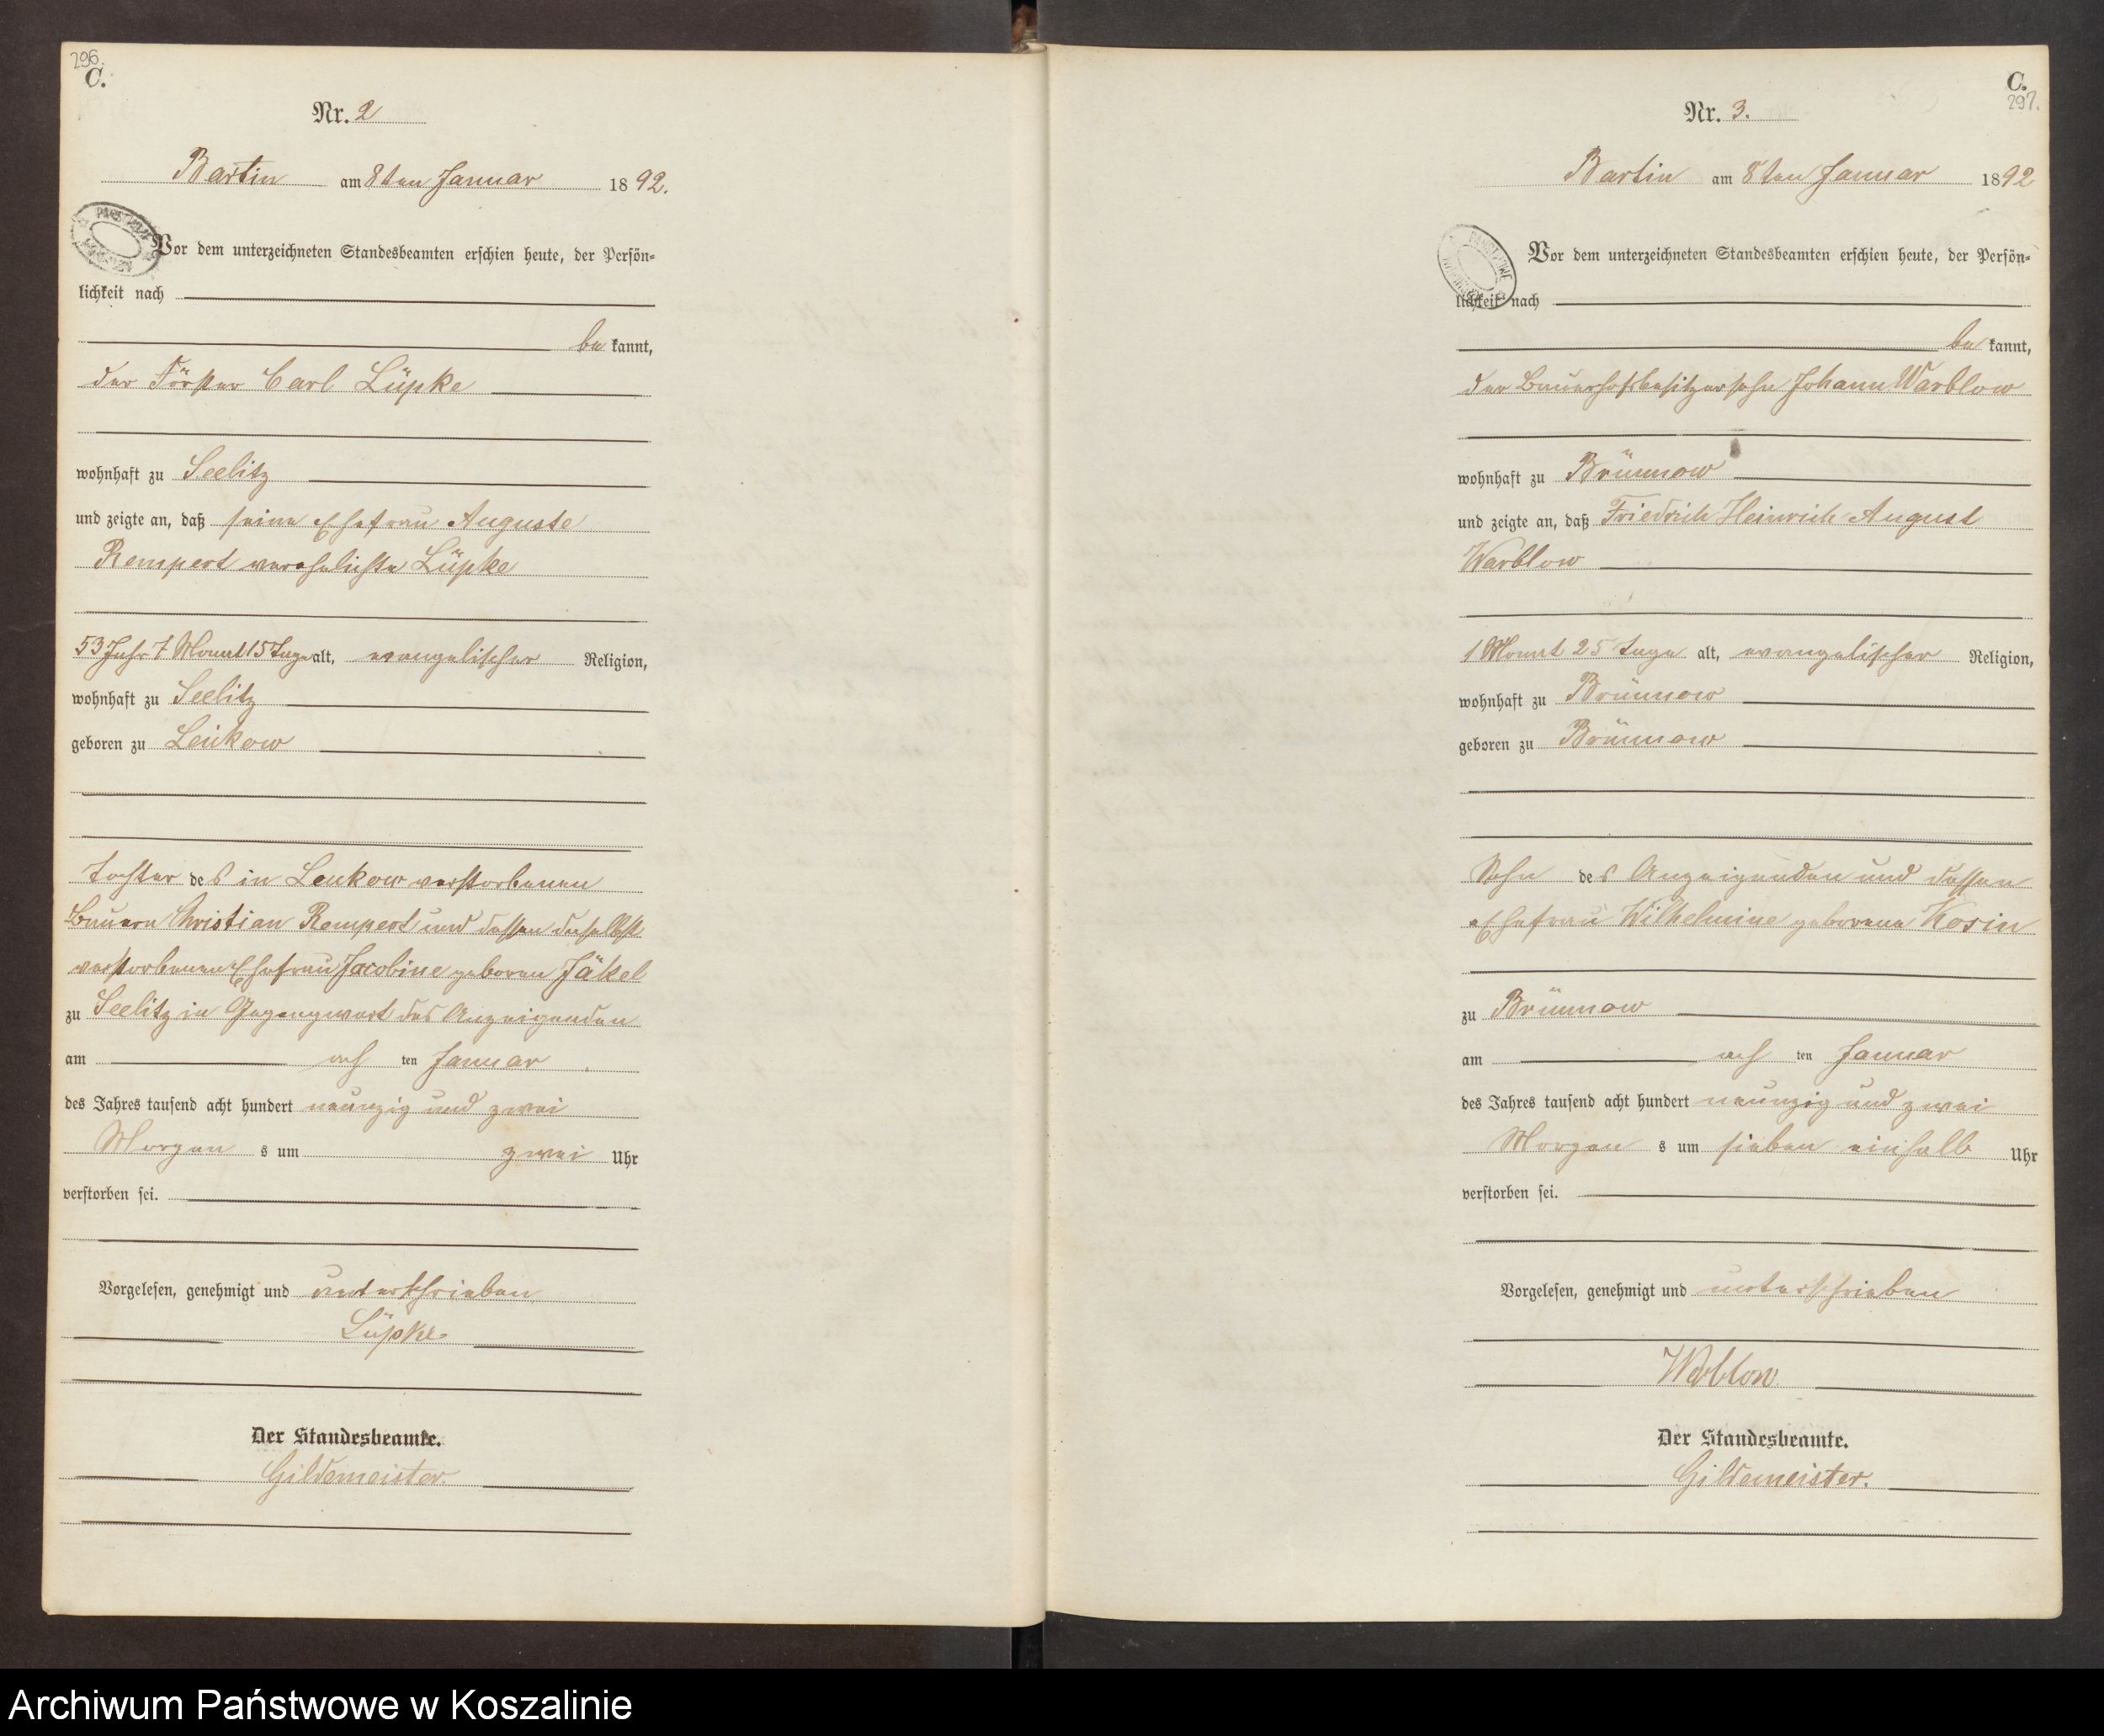 296.
C.
Nr. 2
Bartin am 8ten Januar 1892.
Vor dem unterzeichneten Standesbeamten erschien heute, der Persön-
lichkeit nach
be kannt,
der Förster Carl Lüpke
wohnhaft zu Seelitz
und zeigte an, daß seine Ehefrau Auguste
Rempert verehelichte Lüpke
53 Jahr 7 Monat 15 Tage alt, evangelischer Religion,
wohnhaft zu Seelitz
geboren zu Leikow
Tochter des in Leikow verstorbenen
Bauern Christian Rempert und dessen daselbst
verstorbenen Ehefrau Jacobine geboren Jäkel
zu Seelitz in Gegengwart des Anzeigenden
am ach ten Januar
des Jahres tausend acht hundert neunzig und zwei
Morgen s um zwei Uhr
verstorben sei.
Vorgelesen, genehmigt und unterschrieben
Lüpke
Der Standesbeamte.
Gildemeister.
C.
297.
Nr. 3.
Bartin am 8ten Januar 1892
Vor dem unterzeichneten Standesbeamten erschien heute, der Persön-
lichkeit nach
be kannt,
der Bauerhofsbesitzersohn Johann Warblow
wohnhaft zu Brünnow
und zeigte an, daß Friedrich Heinrich August
Warblow
1 Monat 25 Tage alt, evangelischer Religion,
wohnhaft zu Brünnow
geboren zu Brünnow
Sohn des Anzeigenden und dessen
Ehefrau Wilhelmine geborene Kosin
zu Brünnow
am ach ten Januar
des Jahres tausend acht hundert neunzig und zwei
Morgen s um sieben einhalb Uhr
verstorben sei.
Vorgelesen, genehmigt und unterschrieben
Warblow
Der Standesbeamte.
Gildemeister.
Archiwum Państwowe w Koszalinie